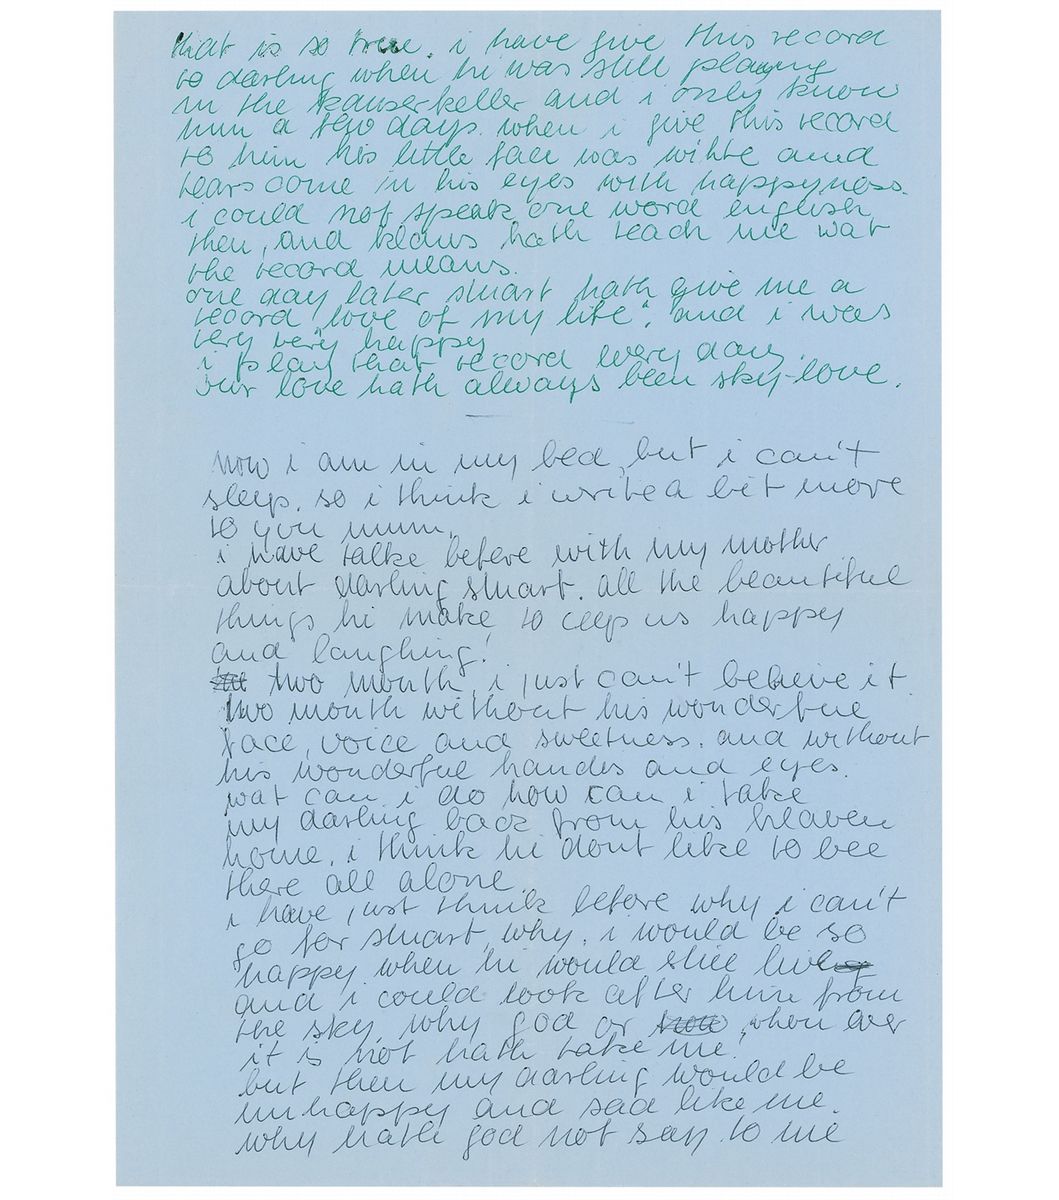 that is so true. i have give this record
to darling when hi was still playing
in the kaiserkeller and i only know
him a two days. when i give this record
to him his little face was wihte and
tears come in his eyes with happyness.
i could not speak one word english,
then, and klaus hath teach me wat
the record means.
one day later stuart hath give me a
record "love of my life". and i was
very very happy
i play that record every day.
our love hath always been sky-love.
now i am in my bed, but i can't
sleep. so i think i write a bit more
to you mum.
i have talke before with my mother
about darling stuart. all the beautiful
things hi make to ceep us happy
and laughing!
two month, i just can't believe it.
two month without his wonderful
face, voice and sweetness. and without
his wonderful handes and eyes.
wat can i do how can i take
my darling back from his heaven
home. i think hi dont like to bee
there all alone.
i have just think before why i can't
go for stuart, why. i would be so
happy when hi would still live
and i could look after him from
the sky. why god or, whon ever
it is not hath take me!
but then my darling would be
unhappy and sad like me.
why hath god not say to me